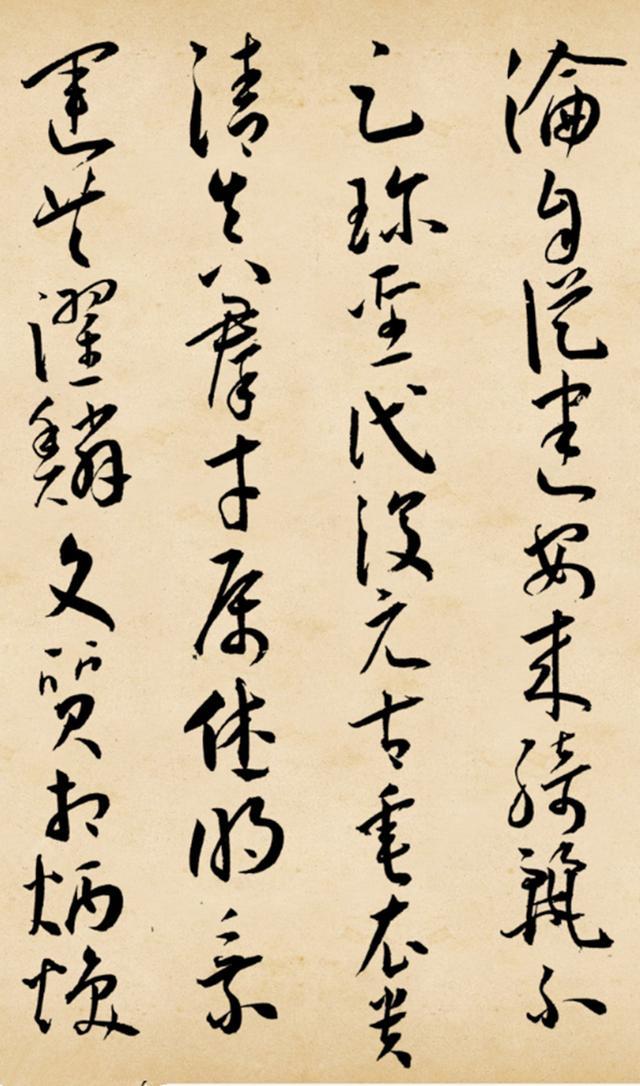 淪自從建安来綺麗不
足珍聖代復元古垂衣貴
清真群才属休明乘
運共躍鱗文質相炳煥